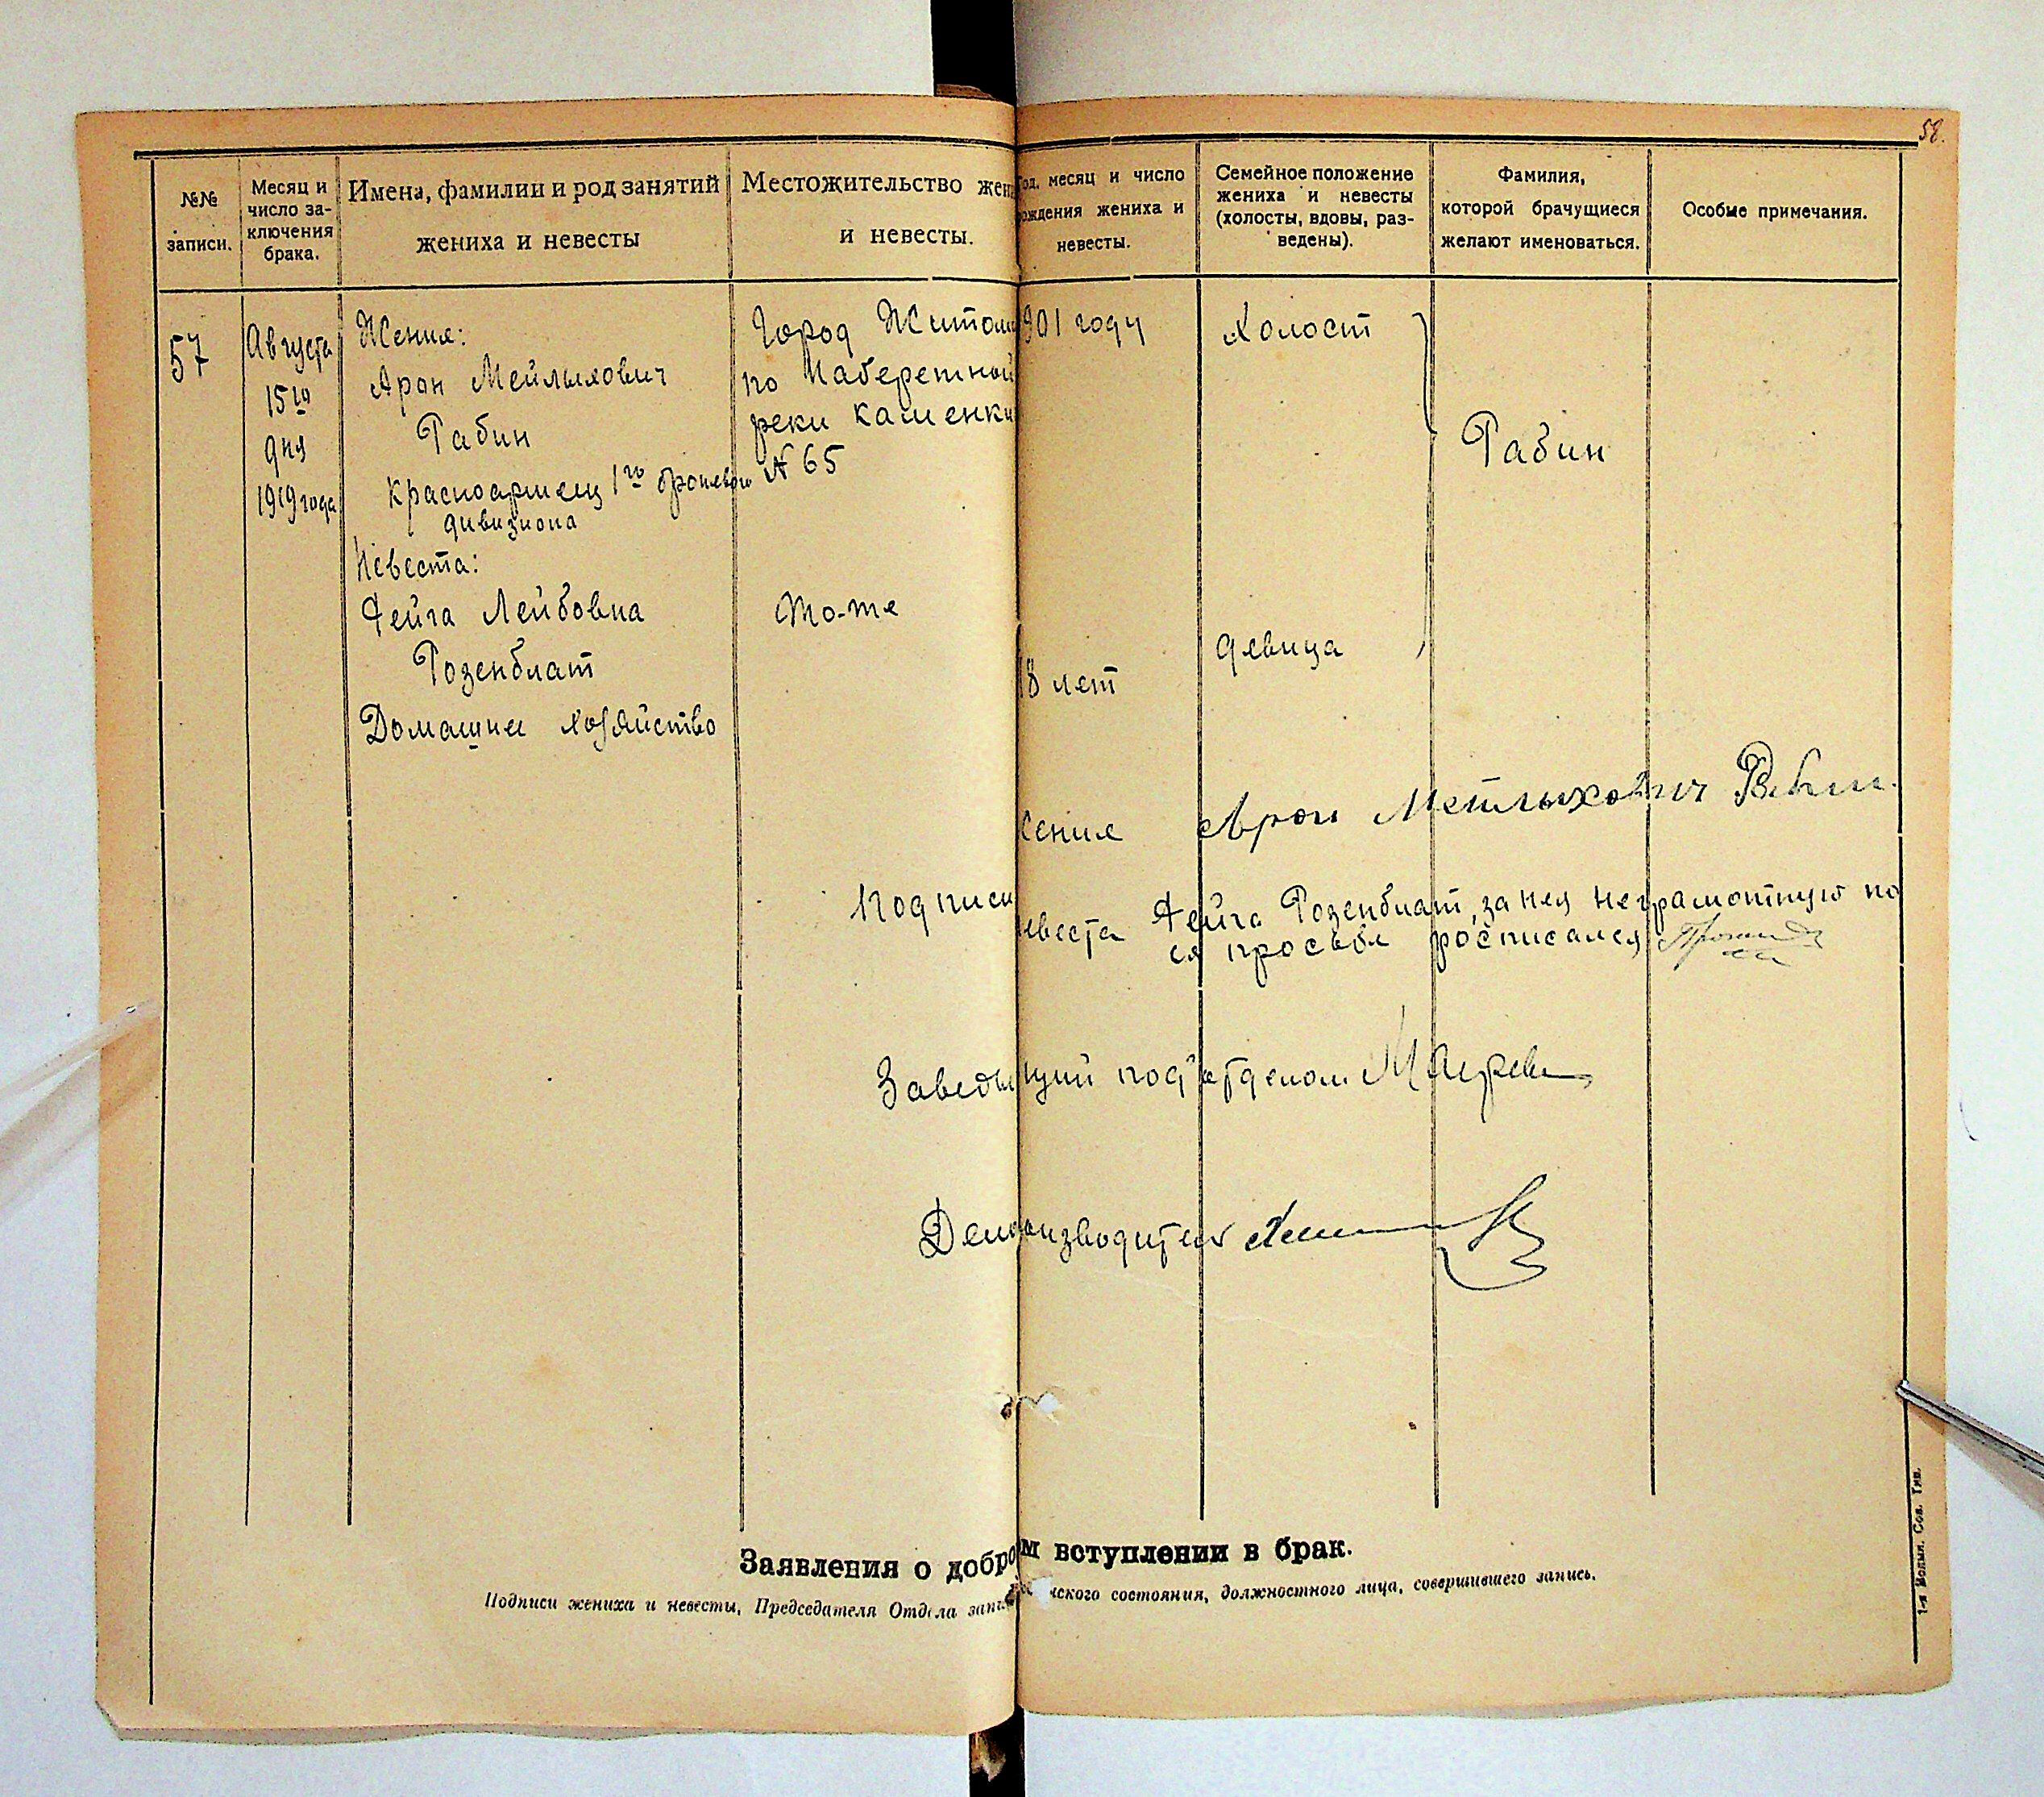 58.
№№
записи.
Месяц и
число за-
ключения
брака.
Имена, фамилии и род занятий
жениха и невесты
Местожительство жен
и невесты.
од, месяц и число
ождения жениха и
невесты.
Семейное положение
жениха и невесты
(холосты, вдовы, раз-
ведены).
Фамилия,
которой брачущиеся
желают именоваться.
Особые примечания.
57
Августа
15го
дня
1919 года
Жених:
Арон Мейлыхович
Рабин
Красноармеец 1го броневого
дивизиона
Невеста:
Фейга Лейбовна
Розенблат
Домашнее хозяйство
Город Житом
по Набережной
реки Каменки
№ 65
То-же
901 году
18 лет
Холост
девица
Рабин
Подписи
жених Арон Мейлыхович Рабин.
невеста Фейга Розенблат, за нея неграмотную по
ея просьбе росписался
Заведывающий под'отделом
Делопроизводитель
Заявления о добро м вступлении в брак.
Подписи жениха и невесты, Председателя Отдела запи нского состояния, должностного лица, совершившего запись.
1-я Волын. Сов. Тип.